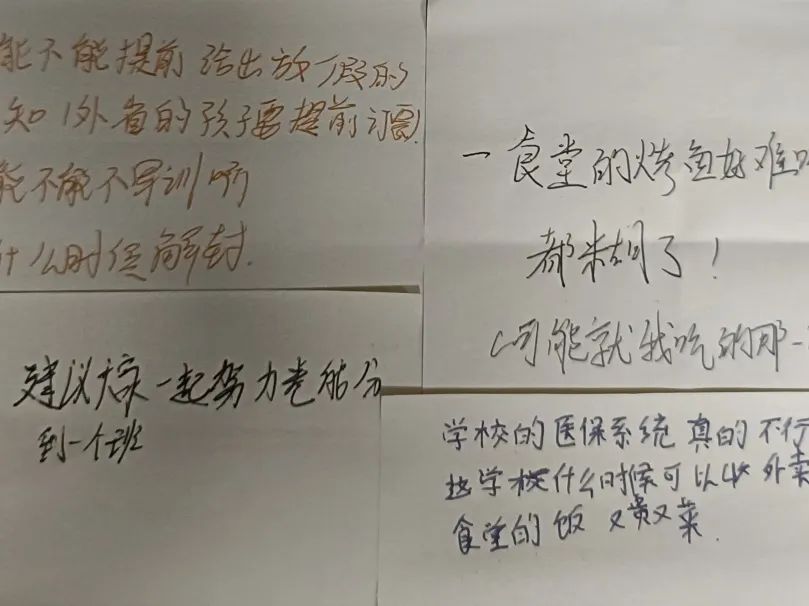 能不能提前给出放假的
知 外省的孩子要提前订票
能不能不军训啊
什么时候解封
一食堂的烤鱼好难吃
都糊了！
可能就我吃的那一
建议大家一起努力 能分
到一个班
学校的医保系统 真的 不行
这学校什么时候可以叫外卖
食堂的饭 又贵又菜